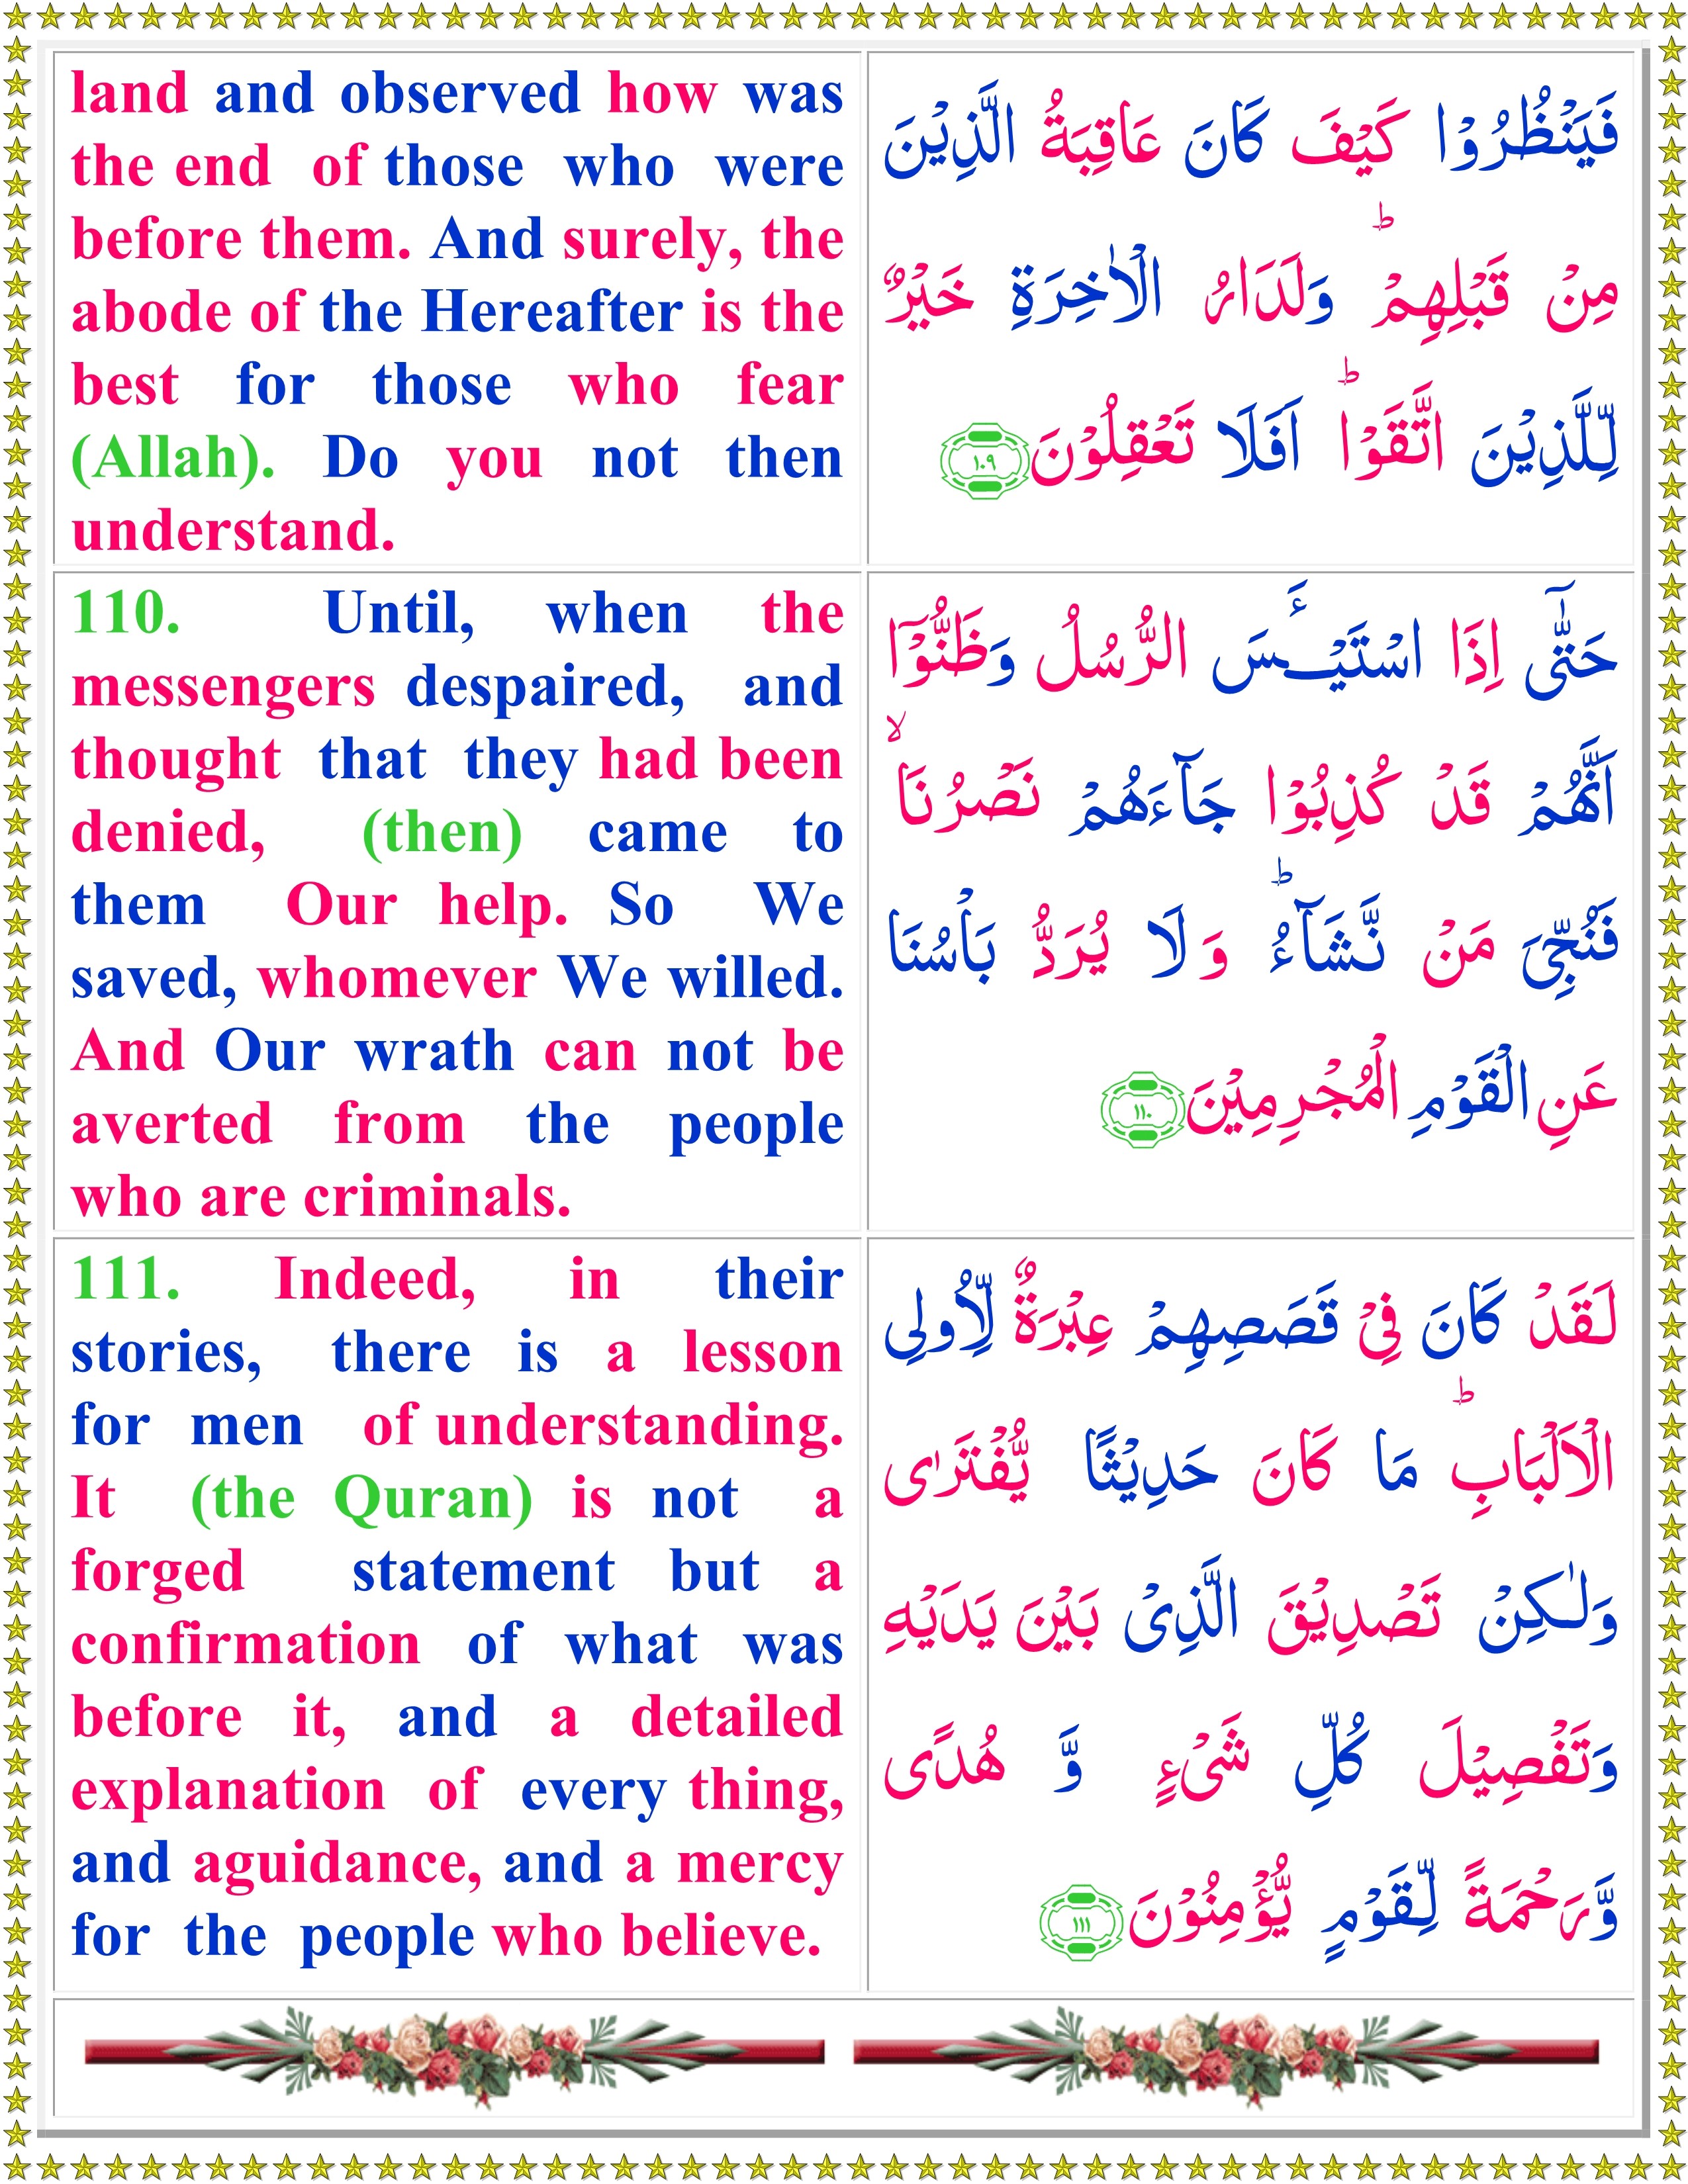 land and observed how was
the end of those who were
before them. And surely, the
abode of the Hereafter is the
best for those who fear
(Allah). Do you not then
understand.
فَيَنْظُرُوْا كَيْفَ كَانَ عَاقِبَةُ الَّذِيْنَ
مِنْ قَبْلِهِمْ ؕ وَلَدَارُ الْاٰخِرَةِ خَيْرٌ
لِّلَّذِيْنَ اتَّقَوْا ؕ اَفَلَا تَعْقِلُوْنَ ۝۱۰۹
110. Until, when the
messengers despaired, and
thought that they had been
denied, (then) came to
them Our help. So We
saved, whomever We willed.
And Our wrath can not be
averted from the people
who are criminals.
حَتّٰۤى اِذَا اسْتَيْـــَٔسَ الرُّسُلُ وَظَنُّوْۤا
اَنَّهُمْ قَدْ كُذِبُوْا جَآءَهُمْ نَصْرُنَا ۙ
فَنُجِّىَ مَنْ نَّشَآءُ ؕ وَ لَا يُرَدُّ بَاْسُنَا
عَنِ الْقَوْمِ الْمُجْرِمِيْنَ ۝۱۱۰
111. Indeed, in their
stories, there is a lesson
for men of understanding.
It (the Quran) is not a
forged statement but a
confirmation of what was
before it, and a detailed
explanation of every thing,
and aguidance, and a mercy
for the people who believe.
لَقَدْ كَانَ فِىْ قَصَصِهِمْ عِبْرَةٌ لِّاُولِى
الْاَلْبَابِ ؕ مَا كَانَ حَدِيْثًا يُّفْتَرٰى
وَلٰـكِنْ تَصْدِيْقَ الَّذِىْ بَيْنَ يَدَيْهِ
وَتَفْصِيْلَ كُلِّ شَىْءٍ وَّ هُدًى
وَّرَحْمَةً لِّقَوْمٍ يُّؤْمِنُوْنَ ۝۱۱۱